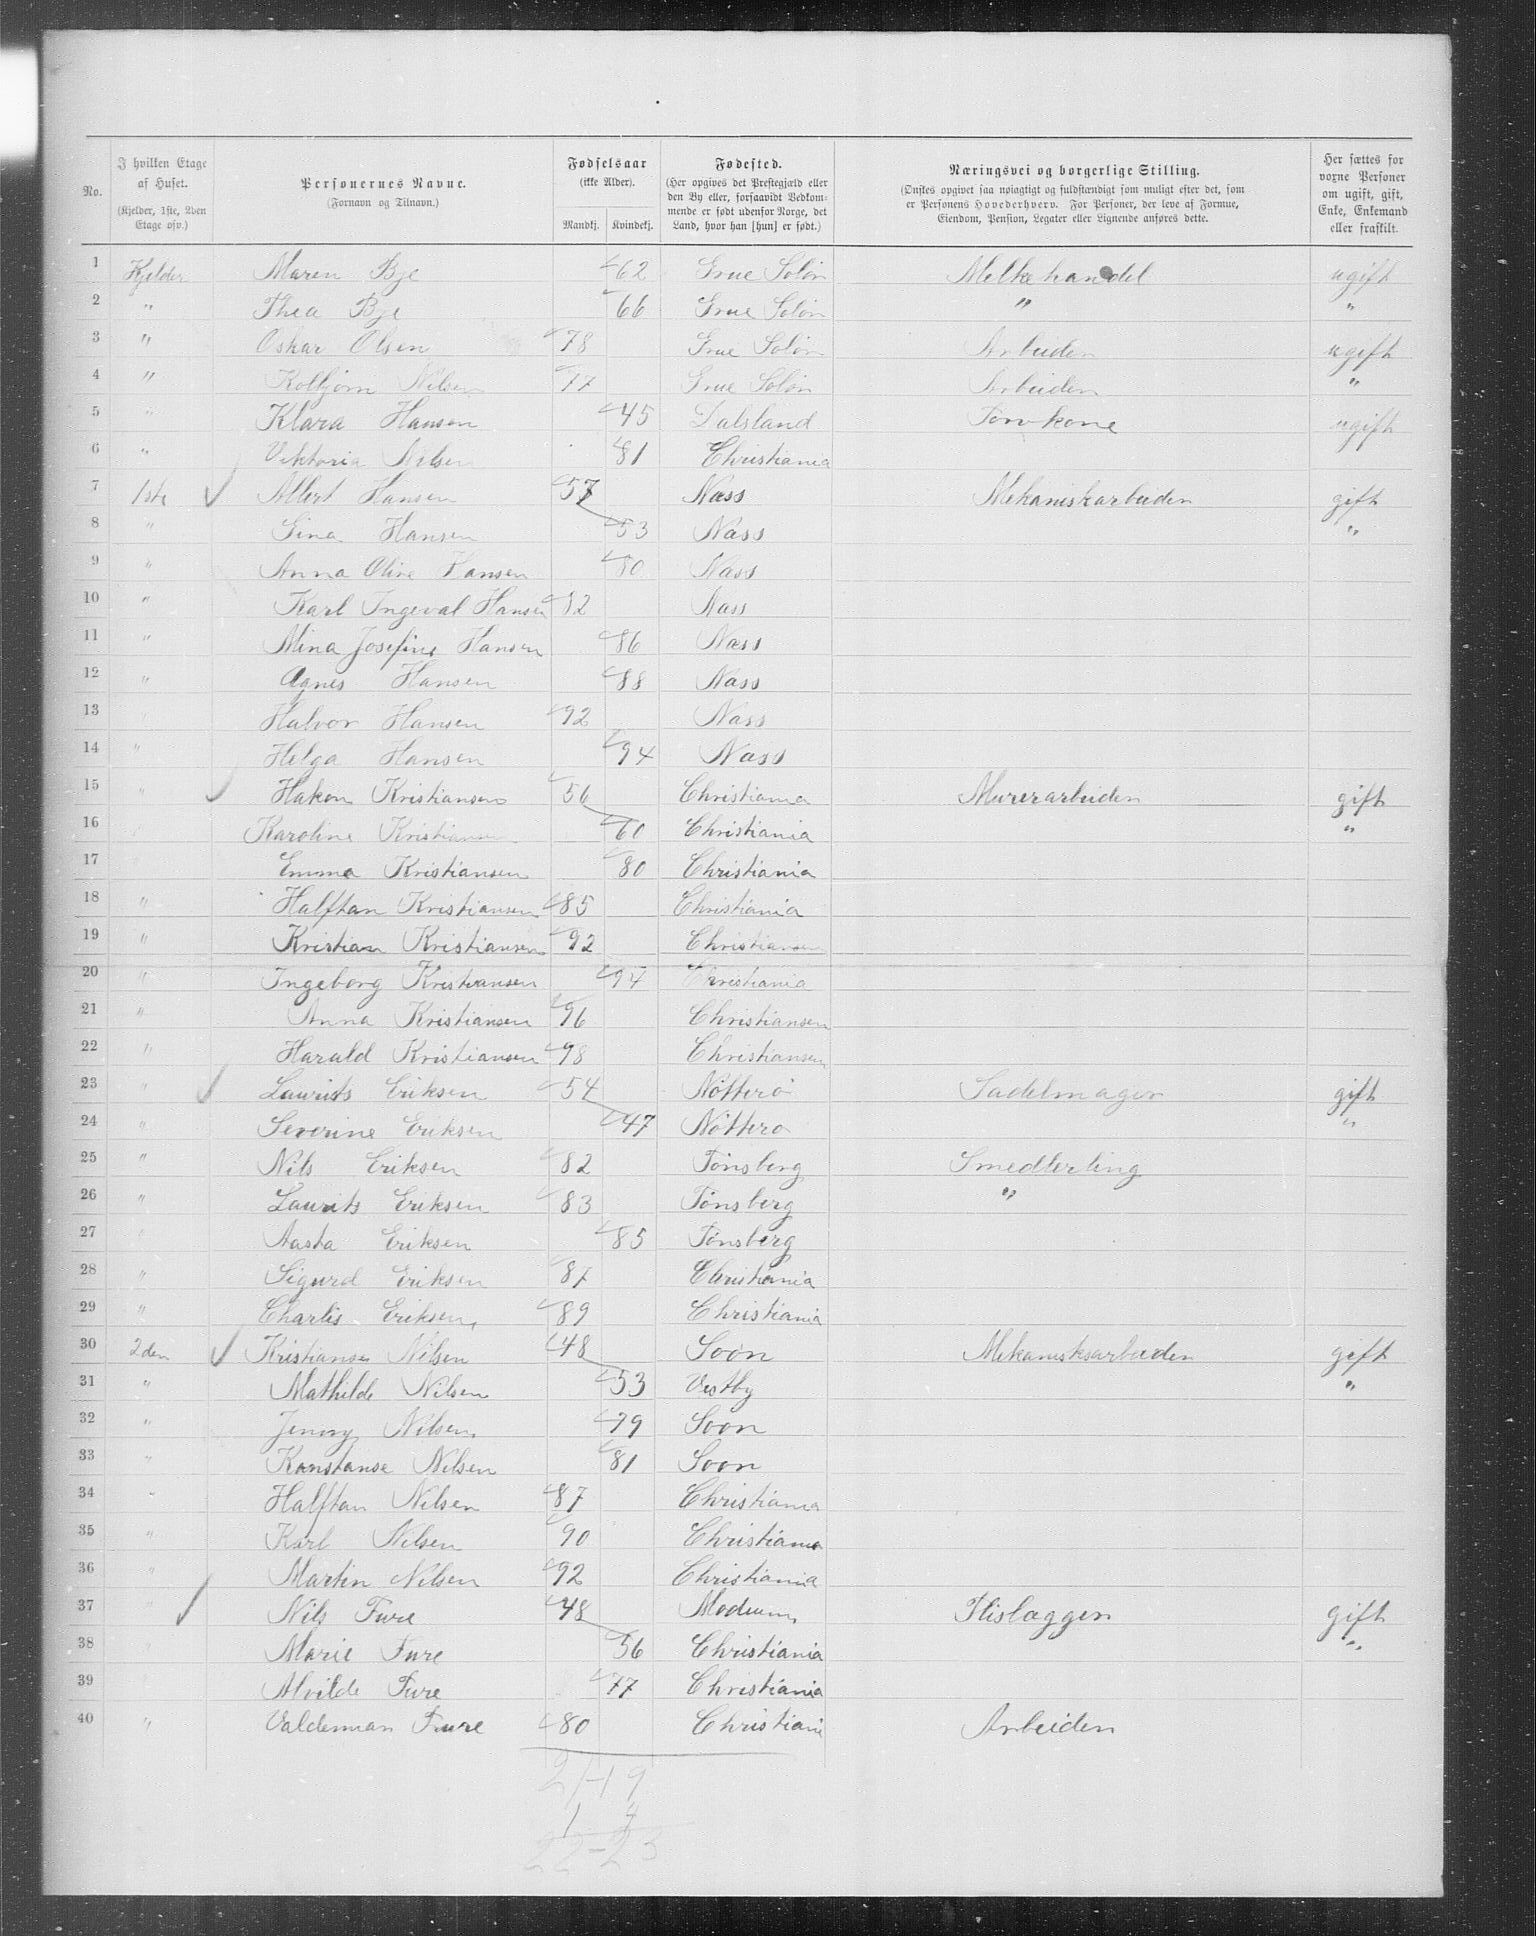 No. | I hvilken Etage af Huset. (Kjelder, 1ste, 2den Etage osv.) | Personernes Navne. (Fornavn og Tilnavn.) | Fødselsaar (ikke Alder). Mandkj. | Kvindekj. | Fødested. (Her opgives det Prestegjæld eller den By eller, forsaavidt Vedkommende er født udenfor Norge, det Land, hvor han [hun] er født.) | Næringsvei og borgerlige Stilling. (Ønskes opgivet saa nøiagtigt og fuldstændigt som muligt efter det, som er Personens Hovederhverv. For Personer, der leve af Formue, Eiendom, Pension, Legater eller Lignende anføres dette.) | Her sættes for voxne Personer om ugift, gift, Enke, Enkemand eller fraskilt.
1 Kjelder Maren Bye 62 Grue Solør Melkehandel ugift
2 " Thea Bye 66 Grue Solør " "
3 " Oskar Olsen 78 Grue Solør Arbeider ugift
4 " Kolbjørn Nilsen 77 Grue Solør Arbeider "
5 " Klara Hansen 45 Dalsland Torvkone ugift
6 " Viktoria Nilsen 81 Christiania
7 1ste Albert Hansen 57 Næss Mekaniskarbeider gift
8 " Gina Hansen 53 Næss "
9 " Anna Oline Hansen 80 Næss
10 " Karl Ingeval Hansen 82 Næss
11 " Mina Josefine Hansen 86 Næss
12 " Agnes Hansen 88 Næss
13 Halvor Hansen 92 Næss
14 " Helga Hansen 94 Næss
15 " Hakon Kristiansen 56 Christiania Murerarbeider gift
16 Karoline Kristiansen 60 Christiania "
17 Emma Kristiansen 80 Christiania
18 " Halftan Kristiansen 85 Christiania
19 " Kristian Kristiansen 92 Christiansen
20 " Ingeborg Kristiansen 94 Christiania
21 " Anna Kristiansen 96 Christiansen
22 " Harald Kristiansen 98 Christiansen
23 " Laurits Eriksen 54 Nøtterø Sadelmager gift
24 " Severine Eriksen 47 Nøtterø "
25 " Nils Eriksen 82 Tønsberg Smedlerling
26 " Laurits Eriksen 83 Tønsberg "
27 " Aasta Eriksen 85 Tønsberg
28 " Sigurd Eriksen 87 Christiania
29 " Charlis Eriksen 89 Christiania
30 2den Kristianse Nilsen 48 Soon Mekaniskarbeider gift
31 " Mathilde Nilsen 53 Vestby "
32 " Jenny Nilsen 79 Soon
33 " Konstanse Nilsen 81 Soon
34 " Halftan Nilsen 87 Christiania
35 " Karl Nilsen 90 Christiania
36 " Martin Nilsen 92 Christiania
37 " Nils Fure 48 Modum Flislægger gift
38 " Marie Fure 56 Christiania "
39 " Alvilde Fure 77 Christiania
40 " Valdemar Fure 80 Christiania Arbeider
21-19
1 4
22-23